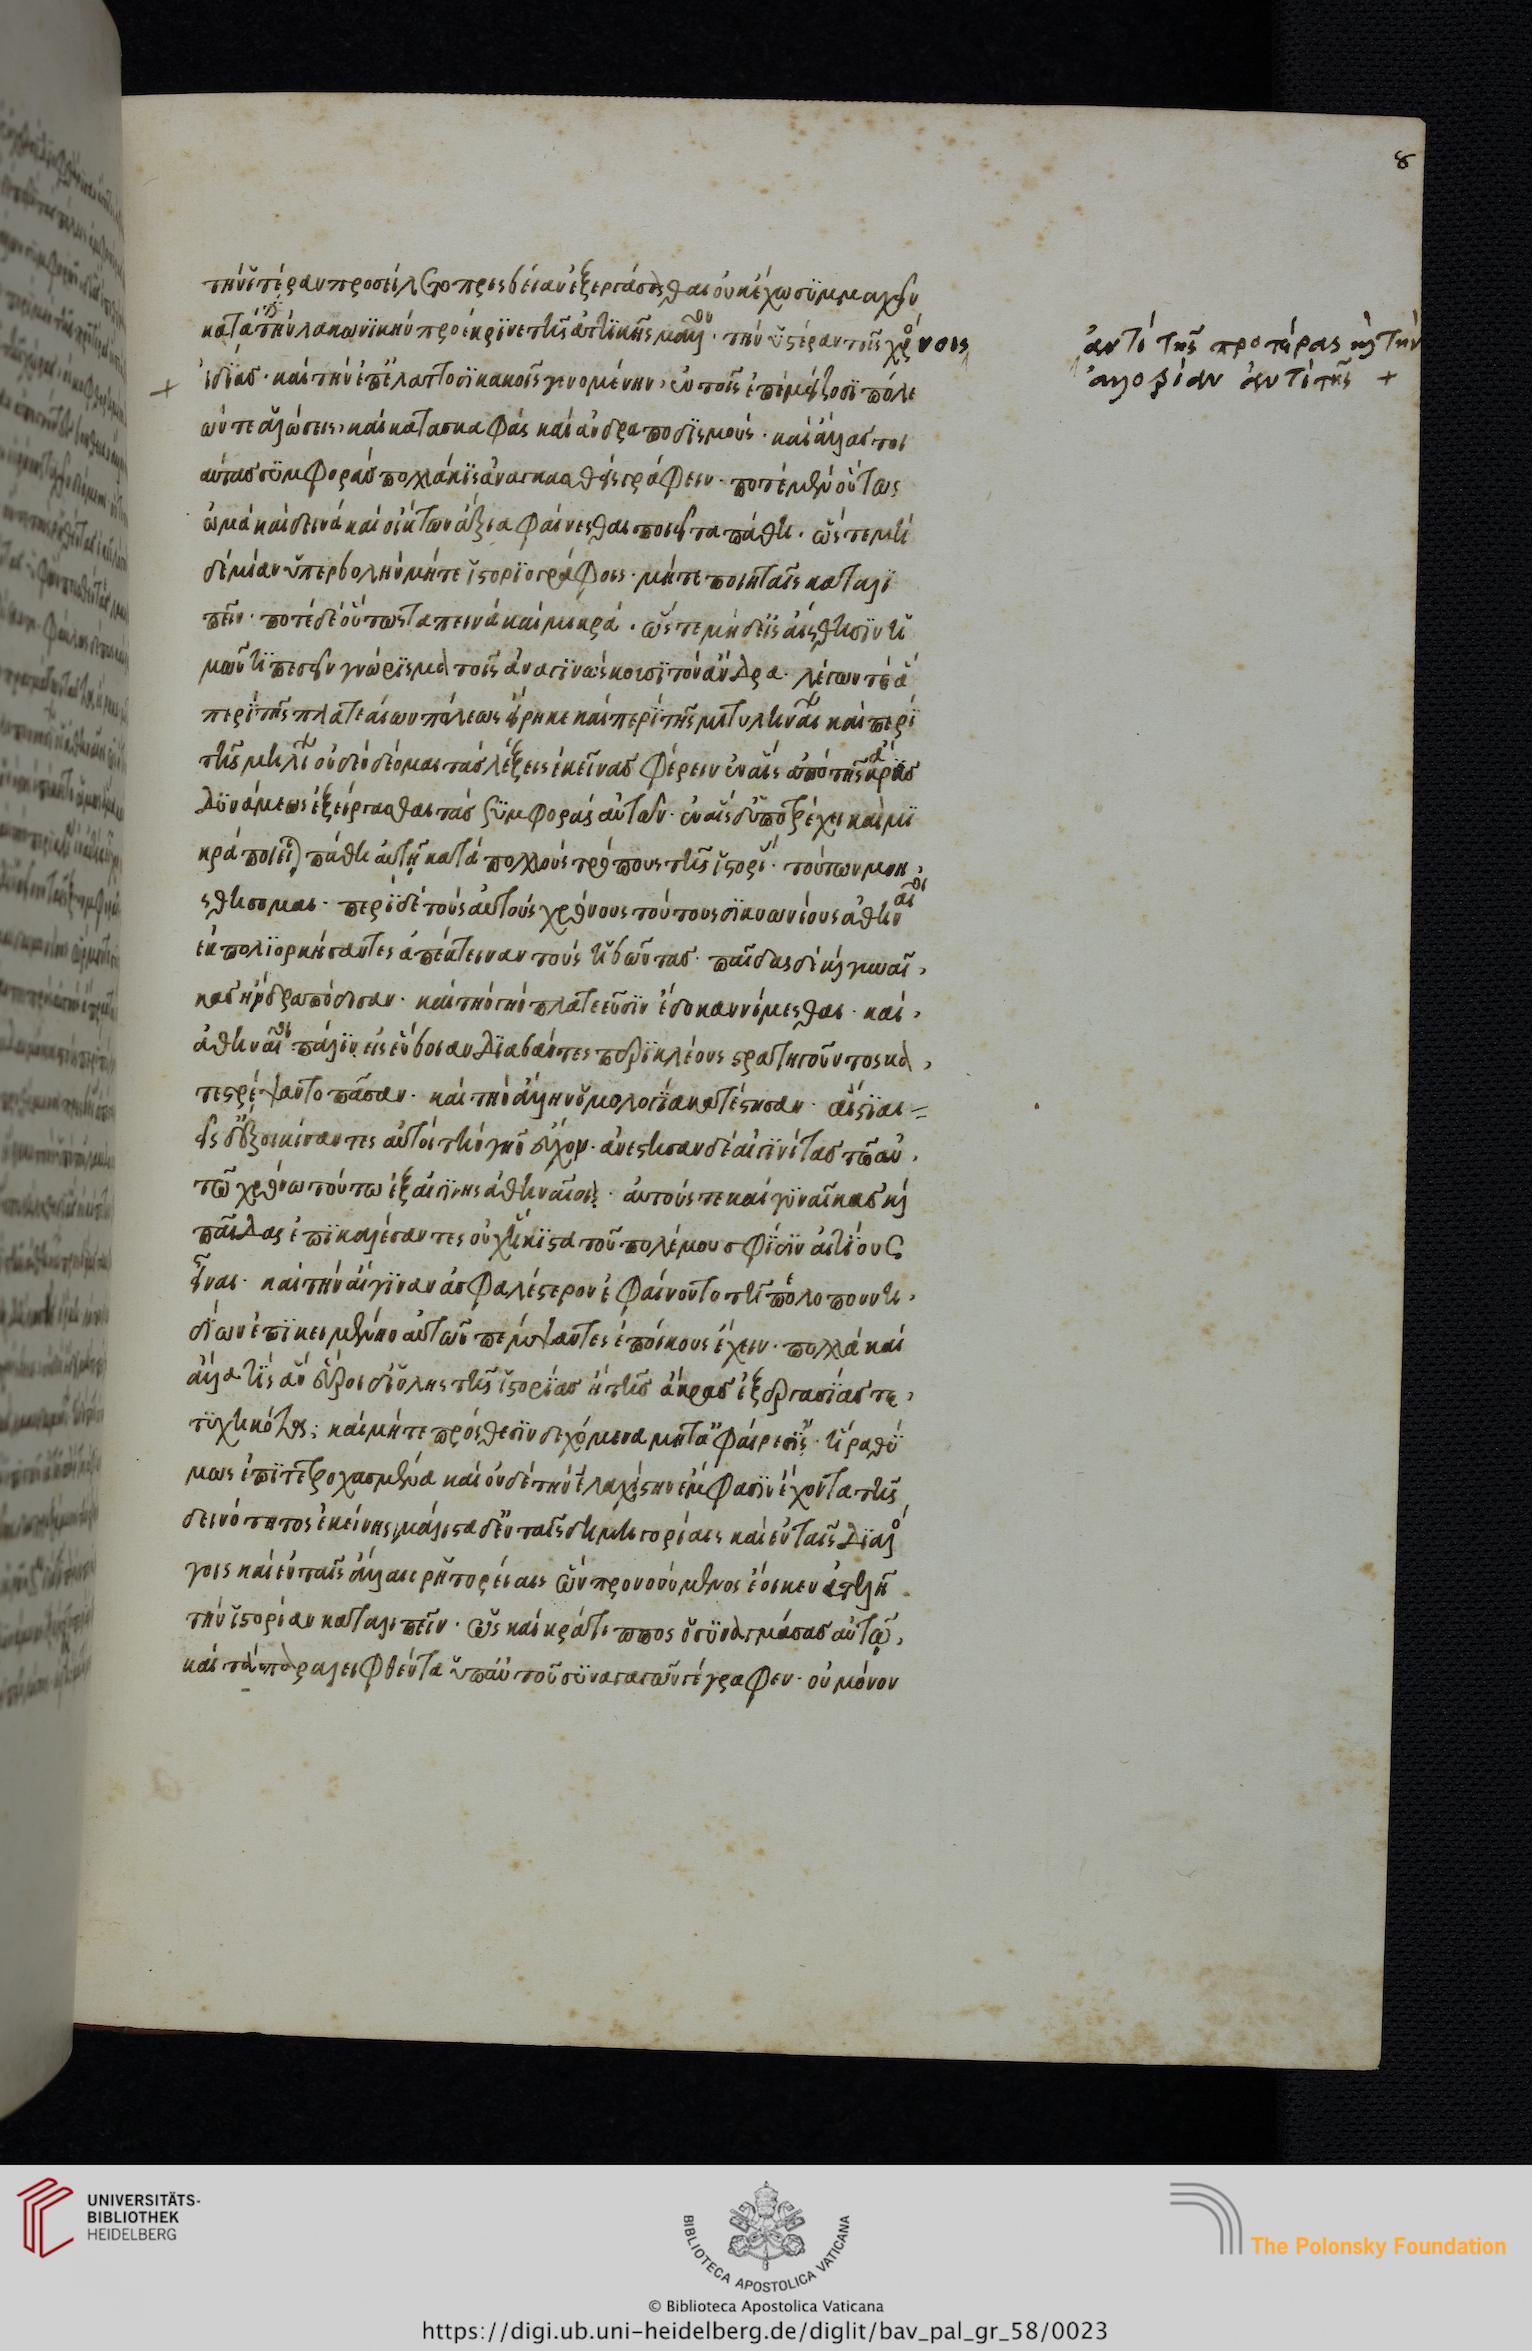 8
τὴν ὑστέραν προσείλετο πρεσβείαν ἐξεργάσασθαι οὐκ ἔχω συμμαχεῖν
κατὰ τί δὲ τὴν λακωνικὴν προέκρινε τῆς ἀττικῆς μᾶλλον · τὴν ὑστέραν τοῖς χρόνοις
ἰδίας · καὶ τὴν ἐπ' ἐλάττοσι κακοῖς γενομένην, ἐν τοῖς ἐπὶ μείζοσι πόλε
ών τε ἁλώσεις, καὶ κατασκαφὰς καὶ ἀνδραποδισμοὺς · καὶ ἄλλας τοι
αύτας συμφορὰς πολλάκις ἀναγκασθεὶς γράφειν · ποτὲ μὲν οὕτως
ὠμὰ καὶ δεινὰ καὶ οἴκτων ἄξια φαίνεσθαι ποιεῖ τὰ πάθη · ὥστε μη
δεμίαν ὑπερβολὴν μήτε ἱστοριογράφοις · μήτε ποιηταῖς καταλι
πεῖν · ποτὲ δὲ οὕτως ταπεινὰ καὶ μικρὰ · ὥστε μηδ' εἰς αἴσθησιν ἡ
μῶν τι πεσεῖν γνώρισμα τοῖς ἀναγινώσκουσι τὸν ἄνδρα · λέγων τε ἃ
περὶ τῆς πλαταιέων πόλεως εἴρηκε καὶ περὶ τῆς μιτυληναίων καὶ περὶ
τῆς μηλίων οὐδὲν δέομαι τὰς λέξεις ἐκείνας φέρειν ἐν αἷς ἀπὸ τῆς ἄκρας
δυνάμεως ἐξείργασθαι τὰς συμφορὰς αὐτῶν · ἐν αἷς δ' ὑποτρέχει καὶ μι
κρὰ ποιεῖ πάθη αὐτῇ κατὰ πολλοὺς τρόπους τῆς ἱστορίας · τούτων μνη
σθήσομαι · περὶ δὲ τοὺς αὐτοὺς χρόνους τούτους σικυωνίους ἀθηναῖοι
ἐκπολιορκήσαντες ἀπέκτειναν τοὺς ἡβῶντας · παῖδας δὲ καὶ γυναῖ
κας ἠνδραπόδισαν · καὶ τὴν γῆν πλατεεῦσιν ἔδοκαν νέμεσθαι · καὶ
ἀθηναῖοι πάλιν εἰς εὔβοιαν διαβάντες περικλέους στρατηγοῦντος κα
τεστρέψαντο πᾶσαν · καὶ τὴν ἄλλην ὁμολογίᾳ κατέστησαν · αἱστιαι
εῖς δ' ἐξοικίσαντες αὐτοὶ τὴν γῆν ἔσχον · ἀνέστησαν δὲ αἰγινήτας τῶ αὐ
τῶ χρόνω τούτω ἐξ αἰγίνης ἀθηναῖοι · αὐτούς τε καὶ γυναῖκας καὶ
παῖδας ἐπικαλέσαντες οὐχ ἥκιστα τοῦ πολέμου σφίσιν αἰτίους
εἶναι · καὶ τὴν αἴγιναν ἀσφαλέστερον ἐφαίνοντο τῇ πελοποννη
σίων ἐπικειμένην αὐτῶν πέμψαντες ἐποίκους ἔχειν · πολλὰ καὶ
ἄλλα τις ἂν εὕροι δι' ὅλης τῆς ἱστορίας ἢ τῆς ἄκρας ἐξεργασίας τε
τυχηκότα · καὶ μήτε πρόσθεσιν δεχόμενα μήτ' ἀφαίρεσιν · ἢ ῥαθύ
μως ἐπιτετροχασμένα καὶ οὐδὲ τὴν ἐλαχίστην ἔμφασιν ἔχοντα τῆς
δεινότητος ἐκείνης μάλιστα δ' ἐν ταῖς δημηγορίαις καὶ ἐν τοῖς διαλό
γοις καὶ ἐν ταῖς ἄλλαις ῥητορείαις ὧν προνοούμενος ἔοικεν ἀτελῆ
τὴν ἱστορίαν καταλιπεῖν · ὡς καὶ κράτιππος ὁ συνακμάσας αὐτῷ,
καὶ τὰ παραλειφθέντα ὑπ' αὐτοῦ συναγαγὼν γέγραφεν · οὐ μόνον
ἀντὶ τῆς προτέρας καὶ τὴν
ἀλλοτρίαν ἀντὶ τῆς +
UNIVERSITÄTS-
BIBLIOTHEK
HEIDELBERG
BIBLIOTECA APOSTOLICA VATICANA
The Polonsky Foundation
© Biblioteca Apostolica Vaticana
https://digi.ub.uni-heidelberg.de/diglit/bav_pal_gr_58/0023